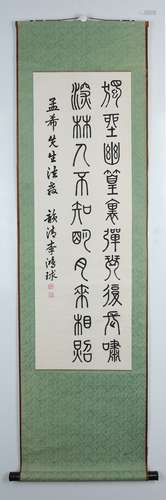 獨坐幽篁裏彈琴復長嘯
深林人不知明月來相照
孟希先生法教 韻清李鴻球